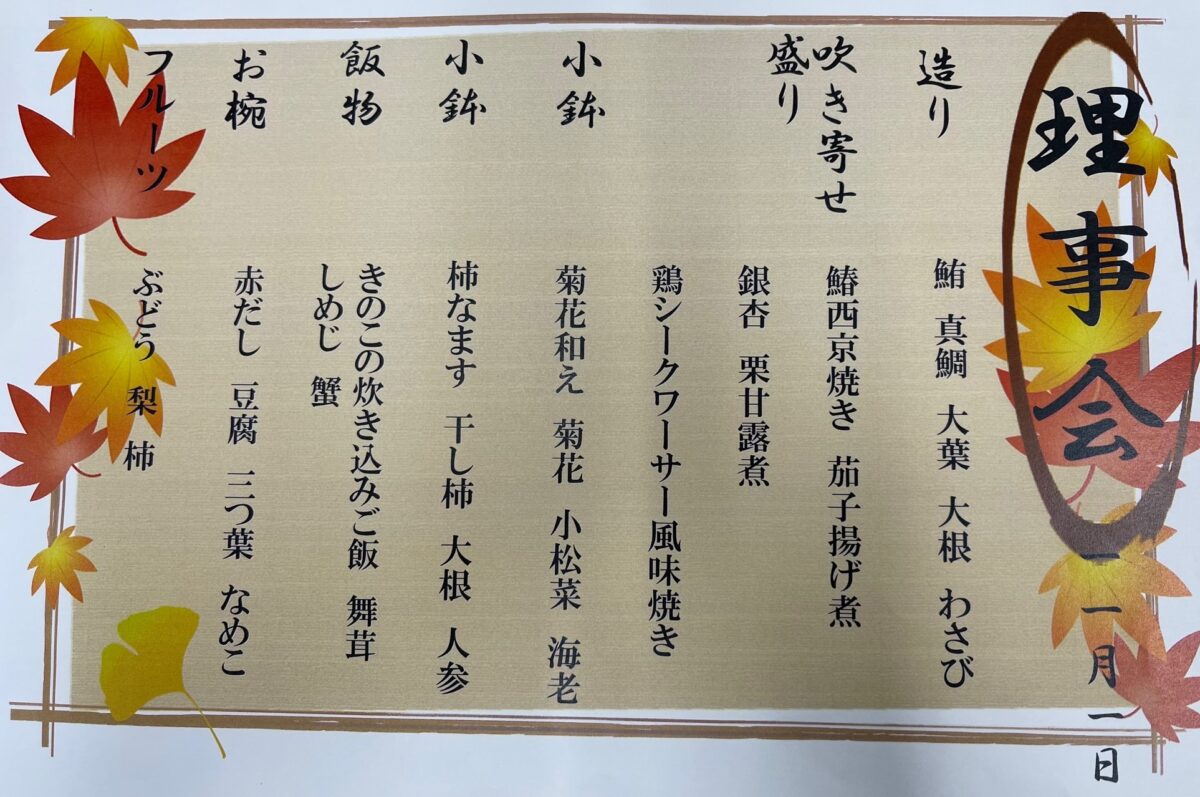 理事会
一一月一日
造り
鮪 真鯛 大葉 大根 わさび
吹き寄せ
盛り
鰆西京焼き 茄子揚げ煮
銀杏 栗甘露煮
鶏シークワーサー風味焼き
小鉢
菊花和え 菊花 小松菜 海老
小鉢
柿なます 干し柿 大根 人参
飯物
きのこの炊き込みご飯 舞茸
しめじ 蟹
お椀
赤だし 豆腐 三つ葉 なめこ
フルーツ
ぶどう 梨 柿